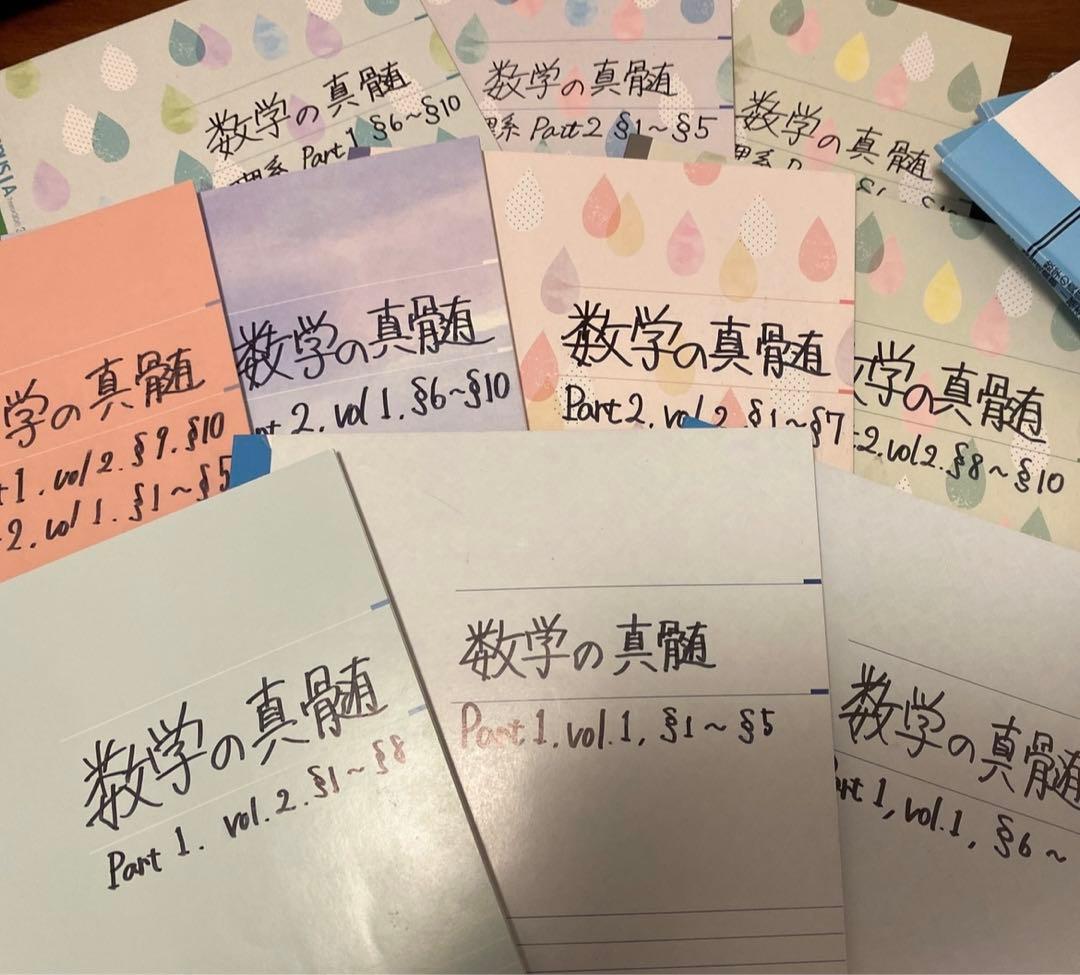 数学の真髄
理系 Part 1 §6~§10
数学の真髄
理系 Part 2 §1~§5
数学の真髄
理系
学の真髄
1. vol 2. §9. §10
2. vol 1. §1~§5
数学の真髄
2. vol 1. §6~§10
数学の真髄
Part 2. vol 2 §1~§7
学の真髄
2. vol 2. §8~§10
数学の真髄
Part 1. vol. 2. §1~§8
数学の真髄
Part 1. vol. 1, §1~§5
数学の真髄
Part 1, vol. 1, §6~